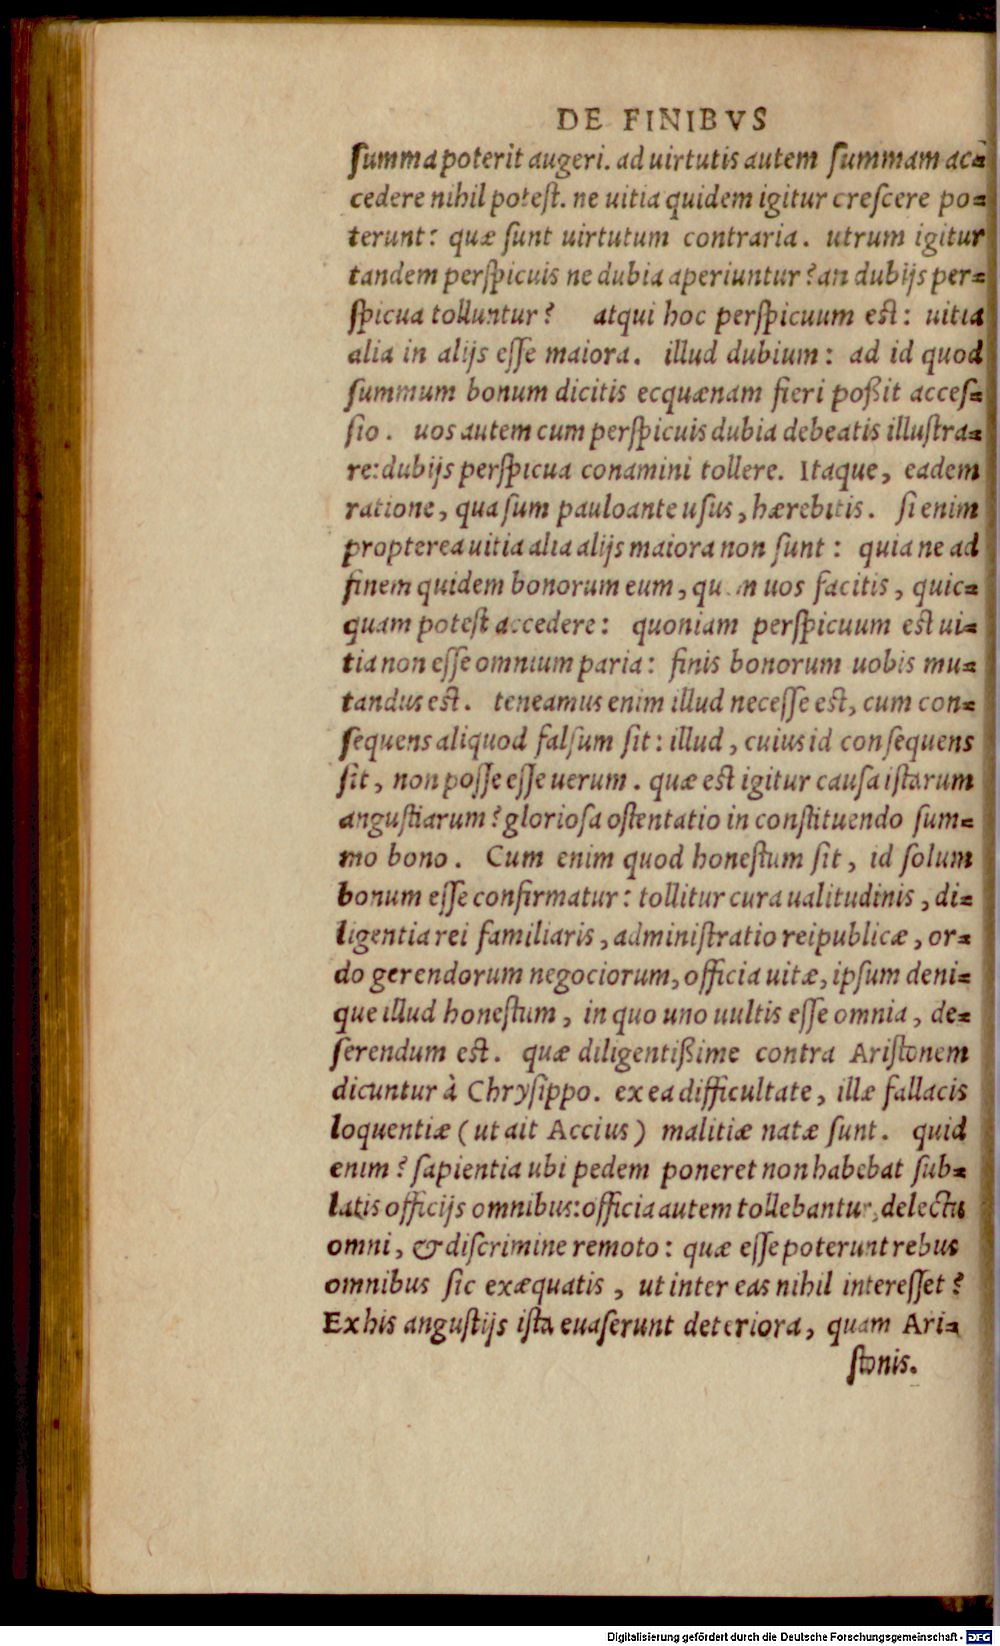 DE FINIBVS
summa poterit augeri. ad uirtutis autem summam ac=
cedere nihil potest. ne uitia quidem igitur crescere po=
terunt: quæ sunt uirtutum contraria. utrum igitur
tandem perspicuis ne dubia aperiuntur? an dubijs per=
spicua tolluntur? atqui hoc perspicuum est: uitia
alia in alijs esse maiora. illud dubium: ad id quod
summum bonum dicitis ecquænam fieri poßit acces=
sio. uos autem cum perspicuis dubia debeatis illustra=
re: dubijs perspicua conamini tollere. Itaque, eadem
ratione, qua sum pauloante usus, hærebitis. si enim
propterea uitia alia alijs maiora non sunt: quia ne ad
finem quidem bonorum eum, quem uos facitis, quic=
quam potest accedere: quoniam perspicuum est ui=
tia non esse omnium paria: finis bonorum uobis mu=
tandus est. teneamus enim illud necesse est, cum con=
sequens aliquod falsum sit: illud, cuius id consequens
sit, non posse esse uerum. quæ est igitur causa istarum
angustiarum? gloriosa ostentatio in constituendo sum=
mo bono. Cum enim quod honestum sit, id solum
bonum esse confirmatur: tollitur cura ualitudinis, di=
ligentia rei familiaris, administratio reipublicæ, or=
do gerendorum negociorum, officia uitæ, ipsum deni=
que illud honestum, in quo uno uultis esse omnia, de=
serendum est. quæ diligentißime contra Aristonem
dicuntur à Chrysippo. ex ea difficultate, illæ fallacis
loquentiæ (ut ait Accius) malitiæ natæ sunt. quid
enim? sapientia ubi pedem poneret non habebat sub=
latis officijs omnibus: officia autem tollebantur, delectu
omni, & discrimine remoto: quæ esse poterunt rebus
omnibus sic exæquatis, ut inter eas nihil interesset?
Ex his angustijs ista euaserunt deteriora, quam Ari=
stonis.
Digitalisierung gefördert durch die Deutsche Forschungsgemeinschaft - DFG